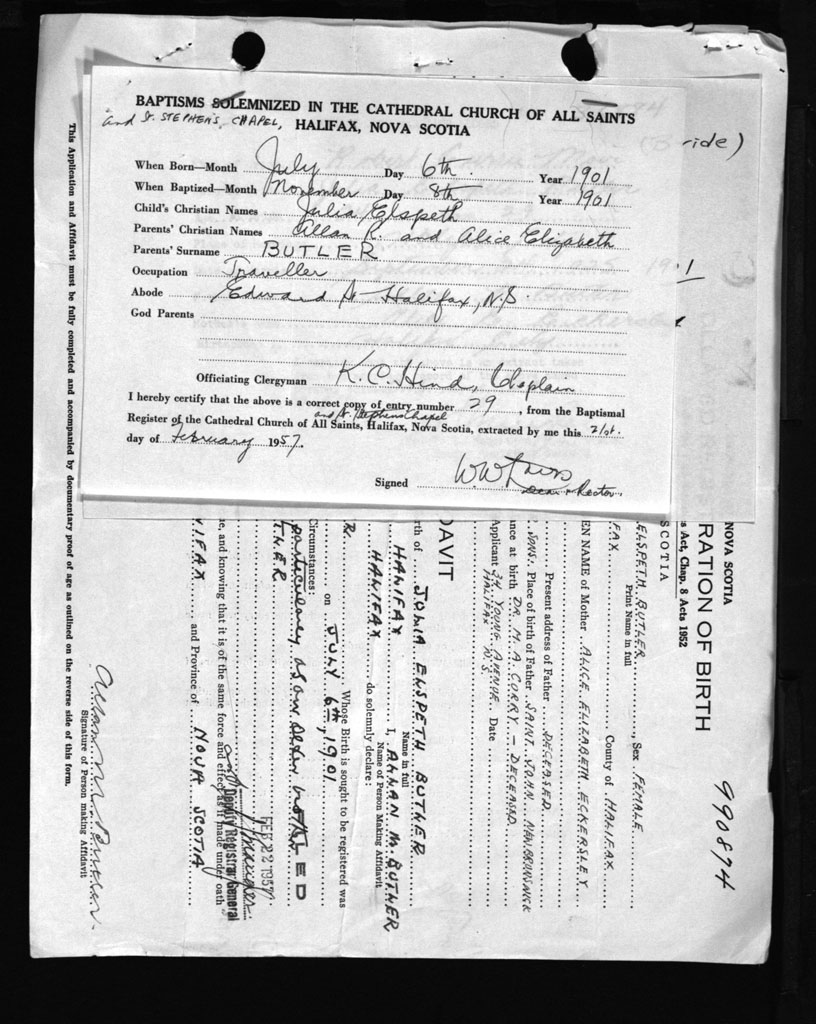 BAPTISMS SOLEMNIZED IN THE CATHEDRAL CHURCH OF ALL SAINTS
and St. STEPHEN'S CHAPEL, HALIFAX, NOVA SCOTIA
When Born—Month July Day 6th. Year 1901
When Baptized—Month November Day 8th Year 1901
Child's Christian Names Julia Elspeth
Parents' Christian Names Allan R. and Alice Elizabeth
Parents' Surname BUTLER
Occupation Traveller
Abode Edward St Halifax, N.S.
God Parents
Officiating Clergyman K. C. Hind, Chaplain
I hereby certify that the above is a correct copy of entry number 29, from the Baptismal
and St. Stephens Chapel
Register of the Cathedral Church of All Saints, Halifax, Nova Scotia, extracted by me this 21st.
day of February 1957.
Signed W W Davis
Dean & Rector.
ride)
NOVA SCOTIA
RATION OF BIRTH
s Act, Chap. 8 Acts 1952
SCOTIA
990894
ELSPETH BUTLER, Sex FEMALE
Print Name in full
FAX County of HALIFAX
EN NAME of Mother ALICE ELIZABETH ECKERSLEY
Present address of Father DECEASED
Place of birth of Father SAINT JOHN NEW BRUNSWICK
ance at birth DR. M. A. CURRY – DECEASED
Applicant 34 YOUNG AVENUE Date
HALIFAX N.S
DAVIT
rth of JULIA ELSPETH BUTLER
Name in full
HALIFAX I, ALLAN M. BUTLER
Name of Person Making Affidavit
HALIFAX do solemnly declare:
Whose Birth is sought to be registered was
R. on JULY 6TH, 1901
Circumstances:
particulars as an older brother
FEB 22 1957
Deputy Registrar General
e, and knowing that it is of the same force and effect as if made under oath
IFAX and Province of NOVA SCOTIA
Allan M. Butler
Signature of Person making Affidavit
This Application and Affidavit must be fully completed and accompanied by documentary proof of age as outlined on the reverse side of this form.